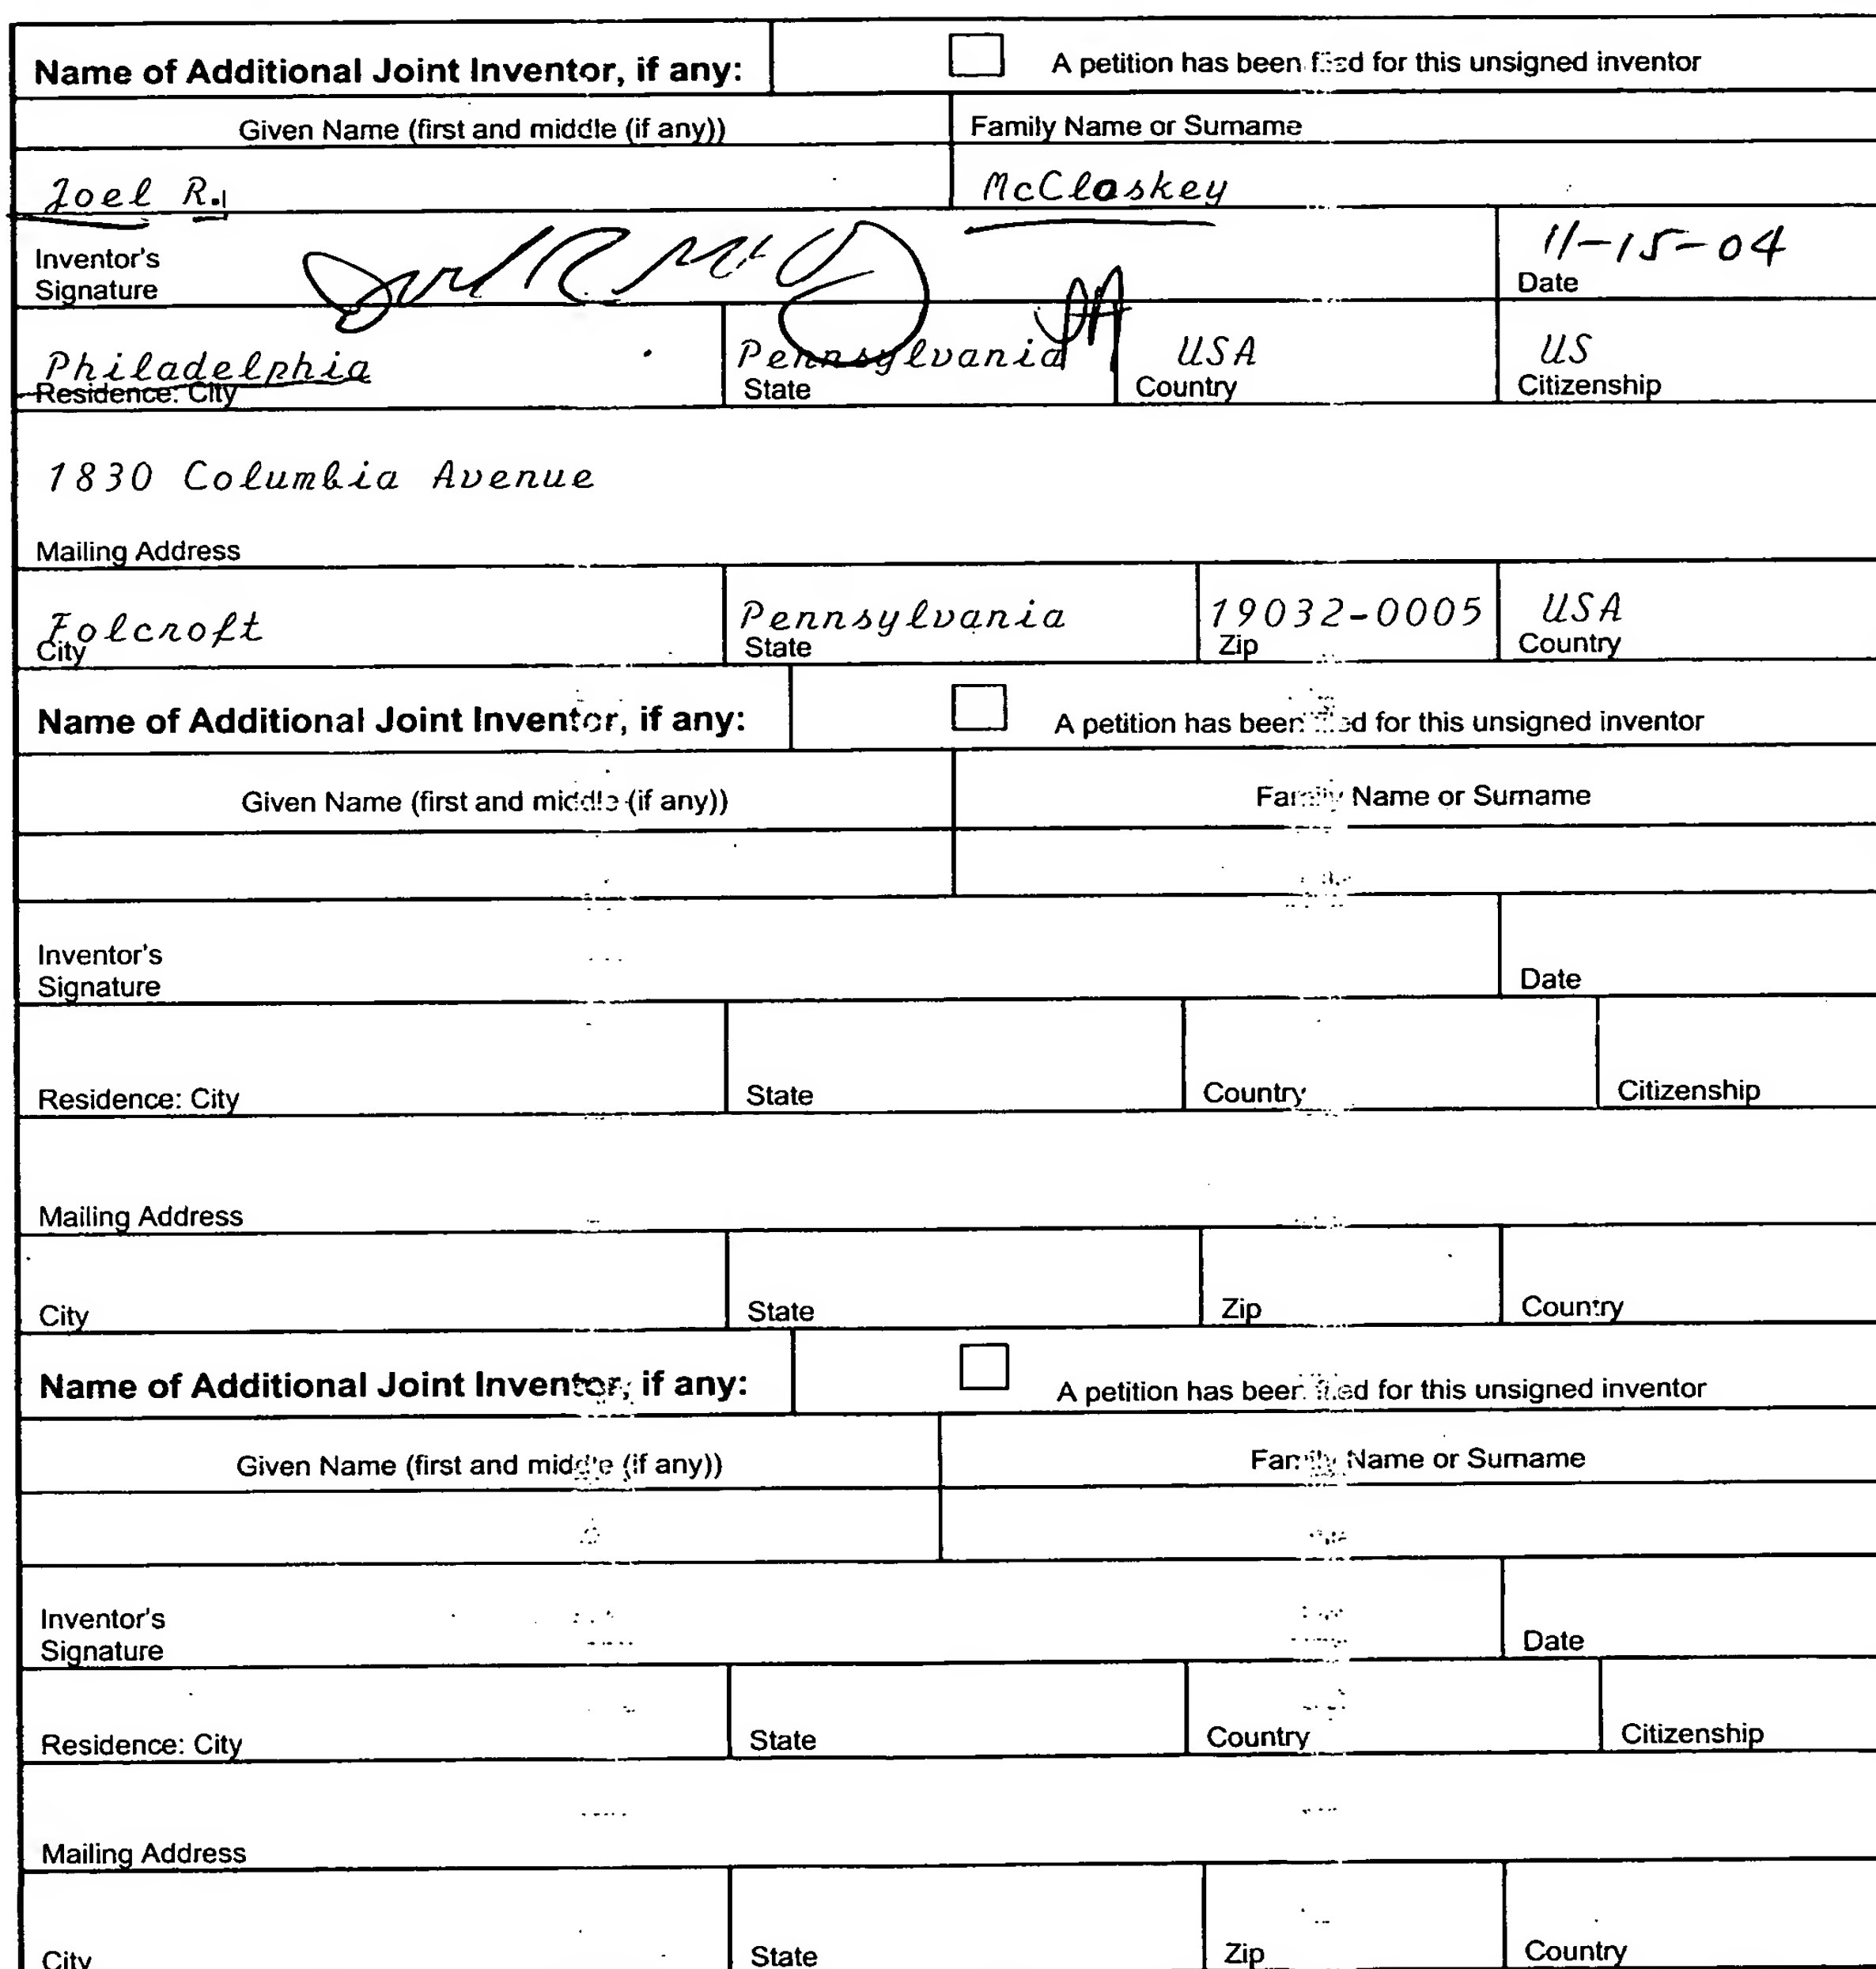 Name of Additional Joint Inventor, if any: A petition has been filed for this unsigned inventor
Given Name (first and middle (if any)) Family Name or Surname
Joel R. McCloskey
Inventor's
Signature
11-15-04
Date
Philadelphia Pennsylvania USA US
Residence: City State Country Citizenship
1830 Columbia Avenue
Mailing Address
Folcroft Pennsylvania 19032-0005 USA
City State Zip Country
Name of Additional Joint Inventor, if any: A petition has been filed for this unsigned inventor
Given Name (first and middle (if any)) Family Name or Surname
Inventor's
Signature Date
Residence: City State Country Citizenship
Mailing Address
City State Zip Country
Name of Additional Joint Inventor, if any: A petition has been filed for this unsigned inventor
Given Name (first and middle (if any)) Family Name or Surname
Inventor's
Signature Date
Residence: City State Country Citizenship
Mailing Address
City State Zip Country